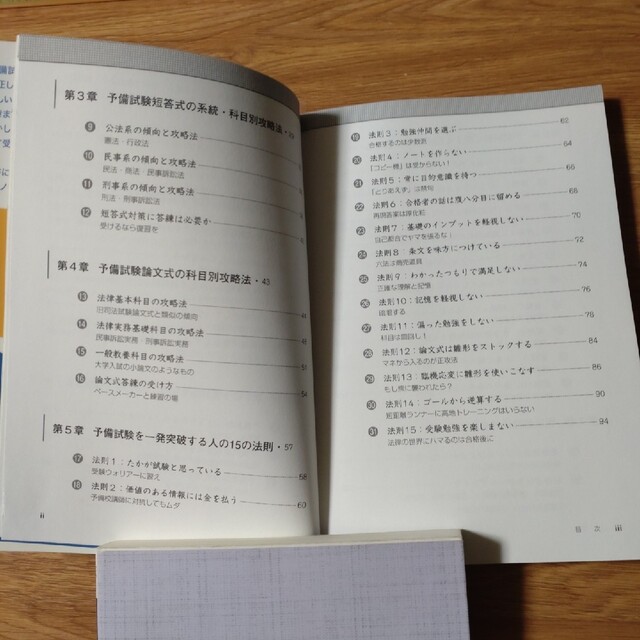 第3章 予備試験短答式の系統・科目別攻略法・
9 公法系の傾向と攻略法
憲法・行政法
10 民事系の傾向と攻略法
民法・商法・民事訴訟法
11 刑事系の傾向と攻略法
刑法・刑事訴訟法
12 短答式対策に答練は必要か
受けるなら復習を
第4章 予備試験論文式の科目別攻略法・43
13 法律基本科目の攻略法
旧司法試験論文式と類似の傾向
14 法律実務基礎科目の攻略法
民事訴訟実務・刑事訴訟実務
15 一般教養科目の攻略法 51
大学入試の小論文のようなもの
16 論文式答練の受け方 54
ペースメーカーと練習の場
第5章 予備試験を一発突破する人の15の法則・57
17 法則1:たかが試験と思っている 58
受験ウォリアーに習え
18 法則2:価値のある情報には金を払う 60
予備校講師に対抗してもムダ
ii
19 法則3:勉強仲間を選ぶ 62
合格するのは少数派
20 法則4:ノートを作らない 64
「コピー機」は受からない!
21 法則5:常に目的意識を持つ 66
「とりあえず」は禁句
22 法則6:合格者の話は腹八分目に留める 68
再現答案は淳化前
23 法則7:基礎のインプットを軽視しない 70
自己都合でヤマを張るな!
24 法則8:条文を味方につけている 72
六法は精密道具
25 法則9:わかったつもりで満足しない 74
正確な理解と記憶
26 法則10:記憶を軽視しない 76
暗記する
27 法則11:偏った勉強をしない 78
科目は毎回回し!
28 法則12:論文式は雛形をストックする 84
マネから入るのが正攻法
29 法則13:臨機応変に雛形を使いこなす 86
もし虎に襲われたら?
30 法則14:ゴールから逆算する 90
短距離ランナーに高地トレーニングはいらない
31 法則15:受験勉強を楽しまない 94
法律の世界にハマるのは合格後に
目次 iii